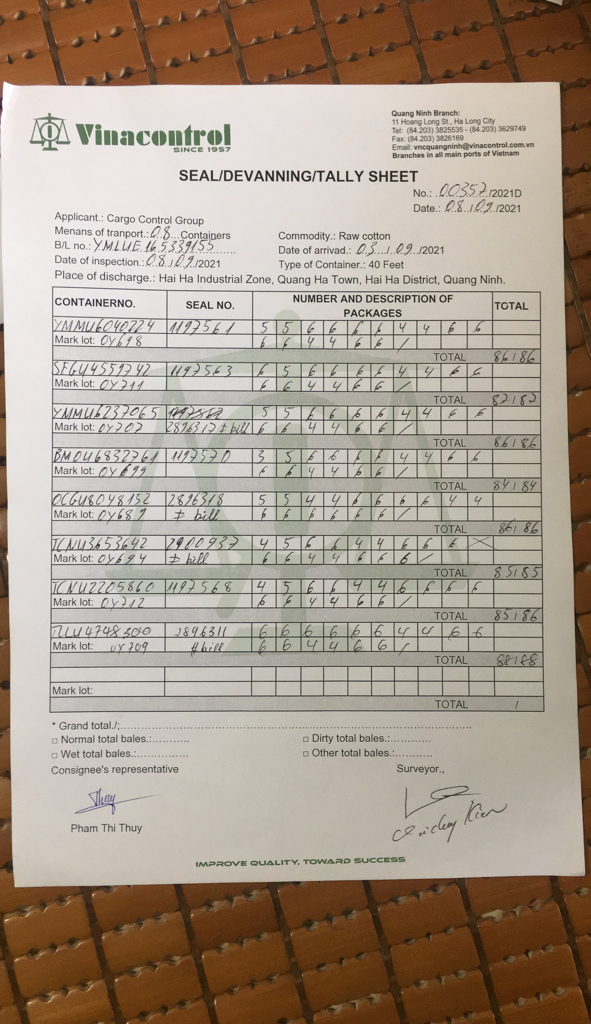 Vinacontrol
SINCE 1957
Quang Ninh Branch:
11 Hoang Long St., Ha Long City
Tel: (84.203) 3825535 - (84.203) 3629749
Fax: (84.203) 3826169
Email: vncquangninh@vinacontrol.com.vn
Branches in all main ports of Vietnam
SEAL/DEVANNING/TALLY SHEET
No.: 00357/2021D
Date.: 08/09/2021
Applicant.: Cargo Control Group
Menans of tranport.: 08 Containers
Commodity.: Raw cotton
B/L no.: YMLUE165339155
Date of arrivad.: 03/09/2021
Date of inspection.: 08/09/2021
Type of Container.: 40 Feet
Place of discharge.: Hai Ha Industrial Zone, Quang Ha Town, Hai Ha District, Quang Ninh.
CONTAINERNO. SEAL NO. NUMBER AND DESCRIPTION OF PACKAGES TOTAL
YMMU6040224 1197561 5 5 6 6 6 6 4 4 6 6
Mark lot: OY698 6 6 4 4 6 6 /
TOTAL 86/86
SEGU4559742 1197563 6 5 6 6 6 6 4 4 6 6
Mark lot: OY711 6 6 4 4 6 6 /
TOTAL 87/87
YMMU6237065 5 5 6 6 6 6 4 4 6 6
Mark lot: OY707 2896317 ≠ bill 6 6 4 4 6 6 /
TOTAL 86/86
BMOU6832761 1197570 3 5 6 6 6 6 4 4 6 6
Mark lot: OY699 6 6 4 4 6 6 /
TOTAL 84/84
OCGU8048152 2896318 5 5 4 4 6 6 6 6 4 4
Mark lot: OY687 ≠ bill 6 6 6 6 6 6 /
TOTAL 86/86
TCNU3653642 2900937 4 5 6 6 4 4 6 6 6
Mark lot: OY694 ≠ bill 6 6 4 4 6 6 6 /
TOTAL 85/85
TCNU2205860 1197568 4 5 6 6 4 4 6 6 6 6
Mark lot: OY712 6 6 4 4 6 6 /
TOTAL 85/86
2896311 6 6 6 6 6 6 4 4 6 6
Mark lot: OY709 ≠ bill 6 6 4 4 6 6 /
TOTAL 88/88
Mark lot:
TOTAL /
* Grand total./:
□ Normal total bales.:
□ Dirty total bales.:
□ Wet total bales.:
□ Other total bales.:
Consignee's representative
Surveyor.,
Thuy
Pham Thi Thuy
IMPROVE QUALITY, TOWARD SUCCESS